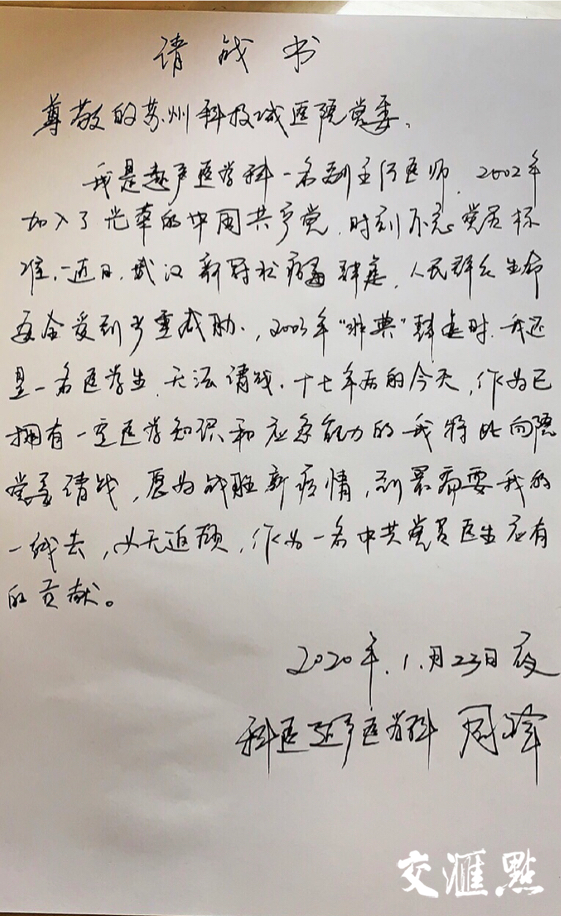 请战书
尊敬的苏州科技城医院党委、
我是超声医学科一名副主任医师、2002年
加入了光荣的中国共产党、时刻不忘党员标
准、近日、武汉新冠状病毒肆虐、人民群众生命
安全受到严重威胁、2003年"非典"肆虐时、我还
是一名医学生、无法请战、十七年后的今天、作为已
拥有一定医学知识和应急能力的我特此向院
党委请战、愿为战胜新疫情、到最需要我的
一线去、义无返顾、作为一名中共党员医生应有
的贡献。
2020年.1.月23日夜
科医超声医学科 周锋
交匯點